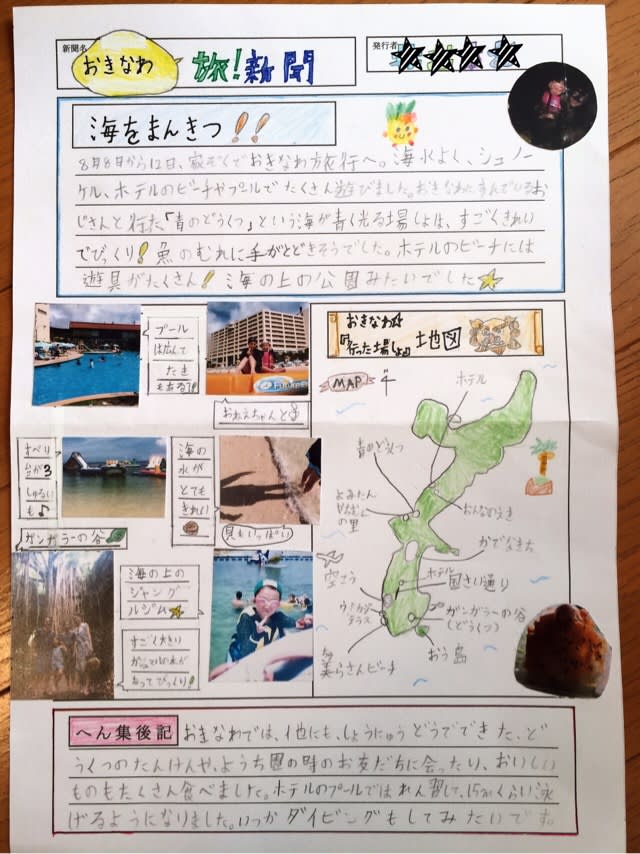 新聞名
おきなわ
旅!新聞
発行者
海をまんきつ!!
8月8日から12日、家ぞくでおきなわ旅行へ。海水よく、シュノー
ケル、ホテルのビーチやプールでたくさん遊びました。おきなわにすんでいるお
じさんと行た「青のどうくつ」という海が青く光る場しょは、すごくきれい
でびっくり!魚のむれに手がとどきそうでした。ホテルのビーチには
遊具がたくさん!海の上の公園みたいでした
プール
は広くて
たき
もある
おねえちゃんと
すべり
台が3
しゅるい
も♪
海の
水が
とても
きれい
貝もいっぱい
ガンガラーの谷
海の上の
ジャング
ルジム
すごく大きい
があってびっくり!
おきなわ
行った場しょ
地図
MAP
ホテル
青のどうくつ
よみたん
の里
おんなのえき
かでなきち
空こう
ホテル
国さい通り
ウミカジ
テラス
ガンガラーの谷
(どうくつ)
美らさんビーチ
おう島
へん集後記
おきなわでは、他にも、しょうにゅうどうでできた、ど
うくつのたんけんや、ようち園の時のお友だちに会ったり、おいしい
ものもたくさん食べました。ホテルのプールではれん習して、15mくらい泳
げるようになりました。いつかダイビングもしてみたいです。